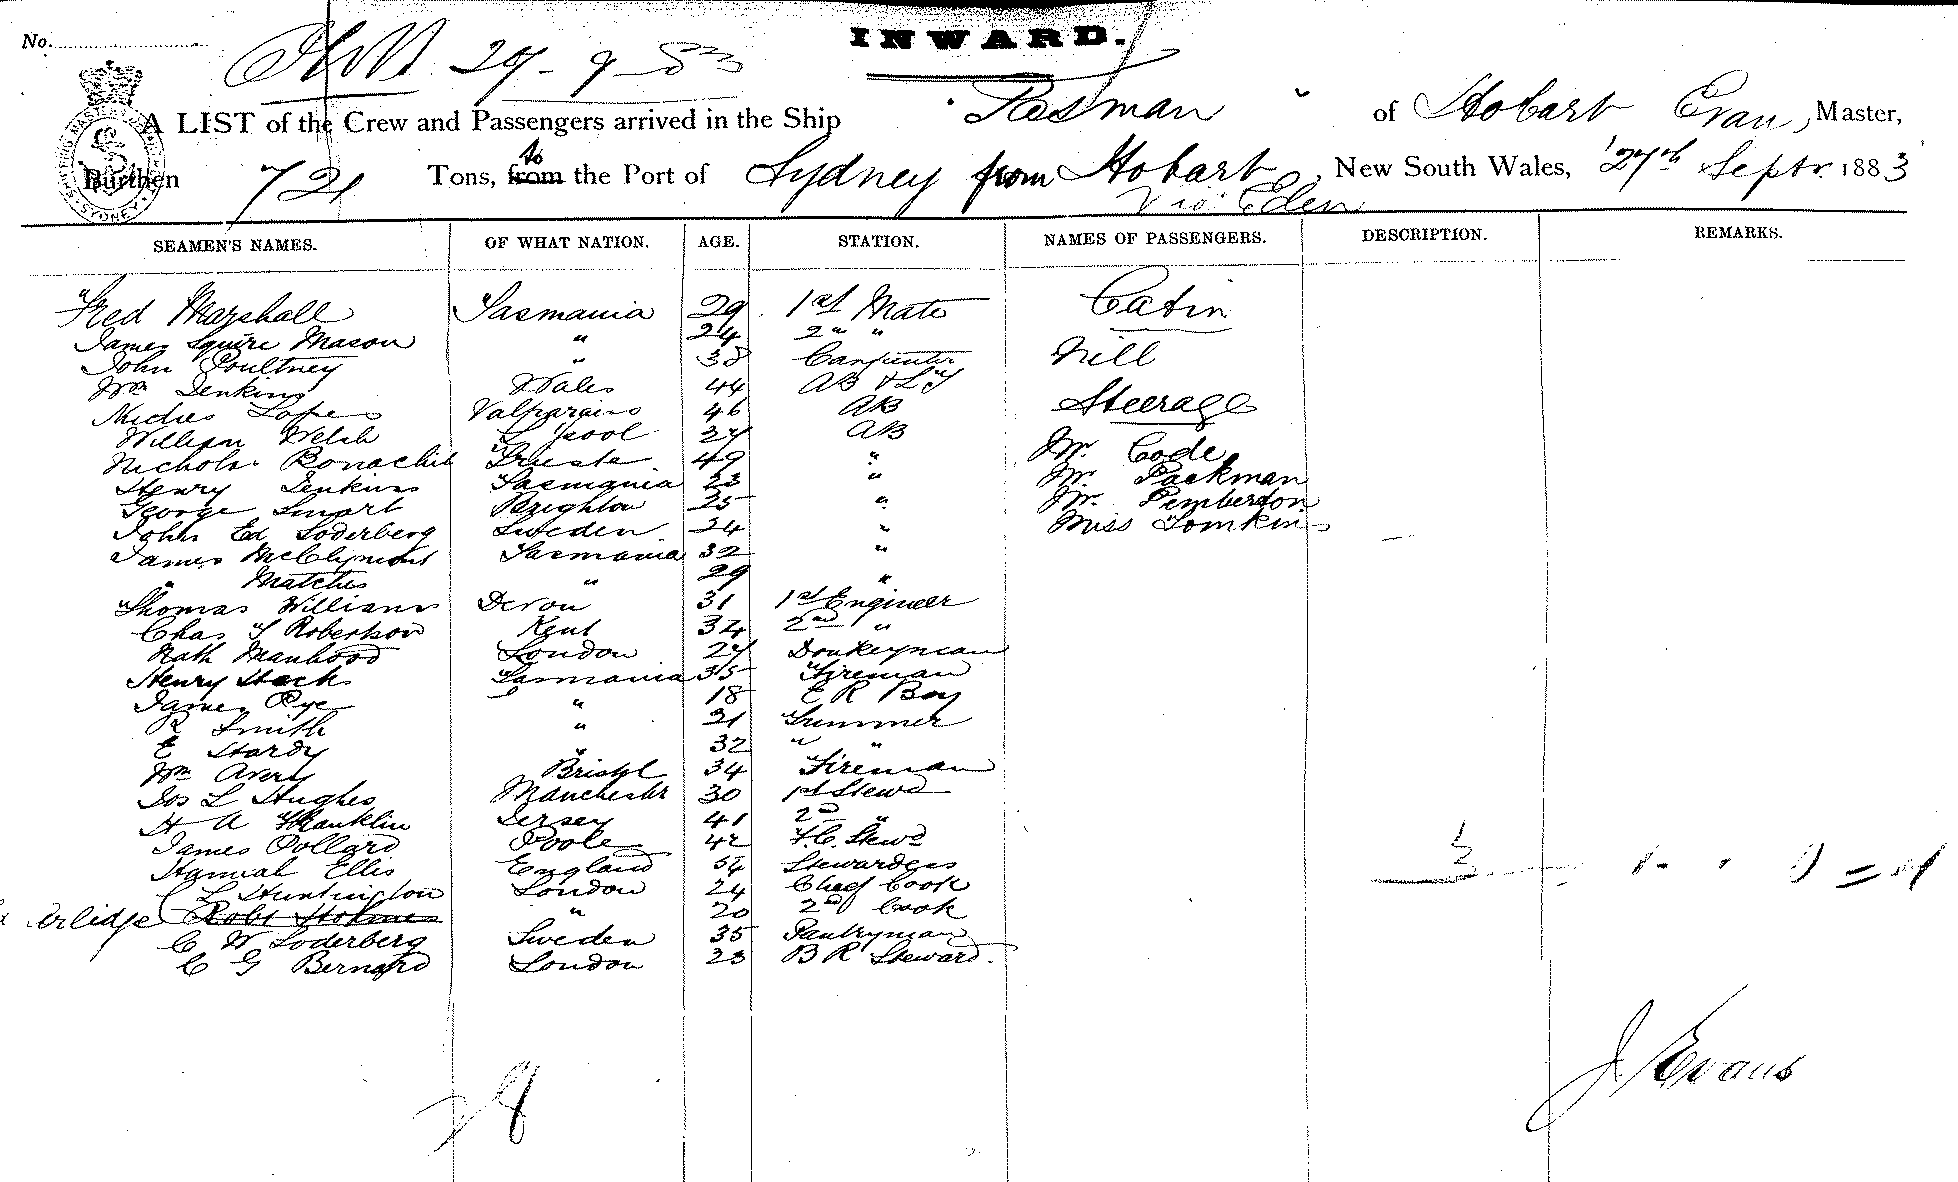 No.
INWARD.
27-9-83
A LIST of the Crew and Passengers arrived in the Ship "Tasman" of Hobart Evan, Master,
Burthen 721 Tons, to from the Port of Sydney from Hobart New South Wales, 27th Septr. 1883
Via Eden
SEAMEN'S NAMES. OF WHAT NATION. AGE. STATION. NAMES OF PASSENGERS. DESCRIPTION. REMARKS.
Fred Marshall Tasmania 29 1st Mate Cabin
James Squire Mason " 24 2" "
John Poultney " 38 Carpenter Nill
Wm Jenkins Wales 44 AB & L"T
Lopes Valparaiso 46 AB Steerage
William Welsh L'pool 27 AB
Nichols Bonachi Trieste 49 " Mr. Code
Henry Jenkins Tasmania 23 " Mr. Packman
George Smart Brighton 25 " Mr. Pemberton
John Ed Soderberg Sweden 24 " Miss Tomkins
James McClymont Tasmania 32 "
" Matches " 29 "
Thomas Williams Devon 31 1st Engineer
Chas T Robertson Kent 34 2nd "
Nath Manhood London 27 Donkeyman
Henry Stack Tasmania 35 Fireman
James Pye " 18 E R Boy
R Smith " 21 Trimmer
E Hardy " 32 " "
Wm Avery Bristol 34 Fireman
Jos L Hughes Manchestr 30 1st Stewd
H A Franklin Jersey 41 2nd "
James Pollard Poole 42 F.C. Stewd
Hannah Ellis England 54 Stewardess
C L Huntington London 24 Chief Cook
Robt Holmes " 20 2nd Cook
C W Soderberg Sweden 35 Pantryman
C G Bernard London 23 B R Steward
J Evans
28